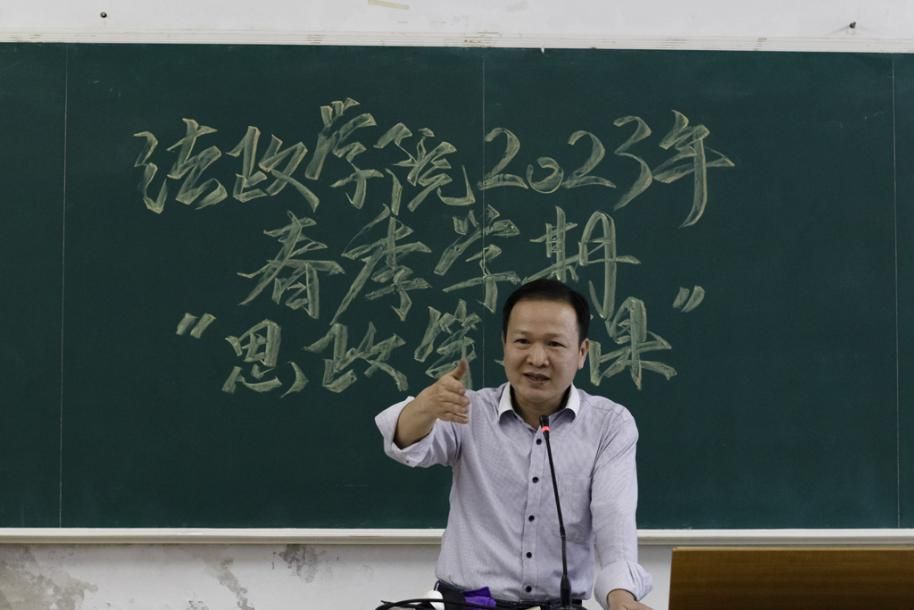 法政学院2023年
春季学期
“思政第 课”